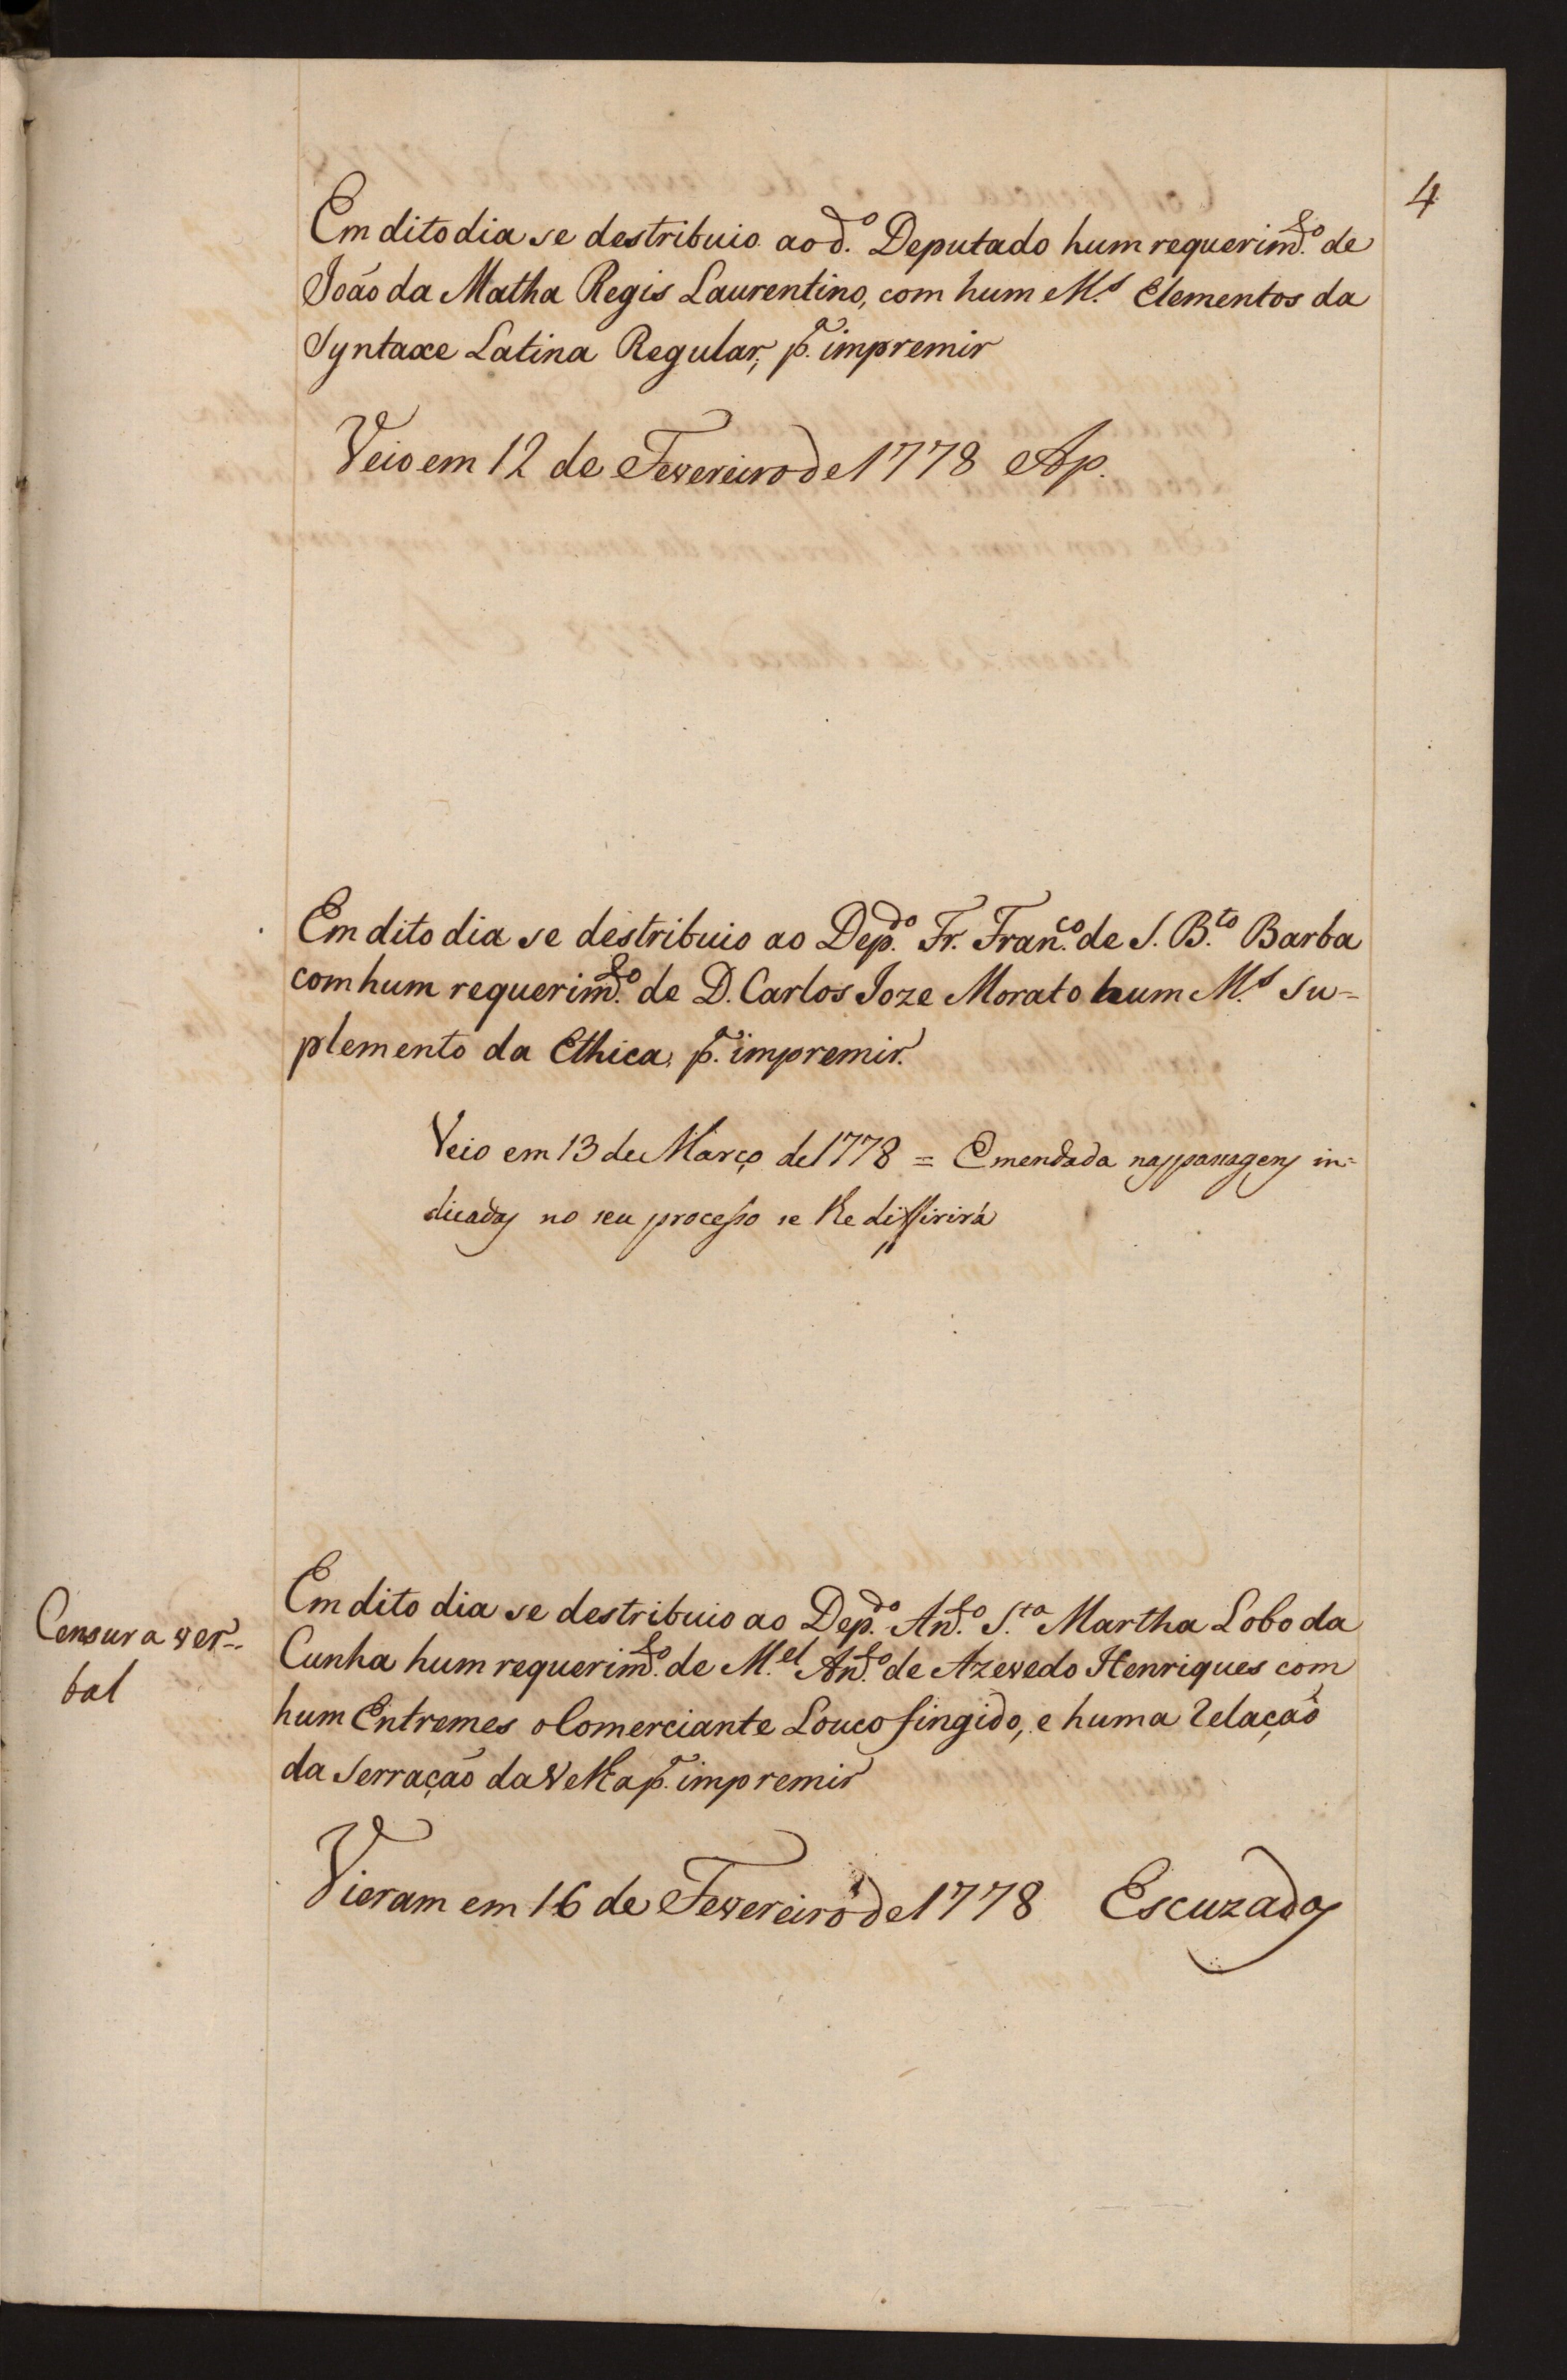 4
Em dito dia se destribuio ao d.º Deputado hum requerim.to de
João da Matha Regis Laurentino, com hum M.s Elementos da
Syntaxe Latina Regular, p.ª impremir
Veio em 12 de Fevereiro de 1778 Ap.
Em dito dia se destribuio ao Dep.do Fr. Fran.co de S. B.to Barba
com hum requerim.to de D. Carlos Joze Morato hum M.s Su=
plemento da Ethica, p.ª impremir.
Veio em 13 de Março de 1778 = Emendada nas passagens in=
dicadas no seu processo se lhe differirá
Censura ver=
bal
Em dito dia se destribuio ao Dep.do An.to S.ta Martha Lobo da
Cunha hum requerim.to de M.el An.to de Azevedo Henriques com
hum Entremes o Comerciante Louco fingido, e huma relação
da Serração da Velha p.ª impremir
Vieram em 16 de Fevereiro de 1778 Escuzados